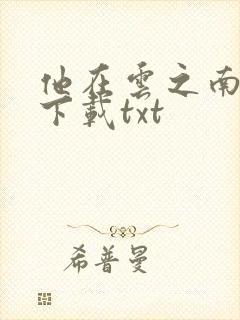 他在雲之南
下載txt
希普曼